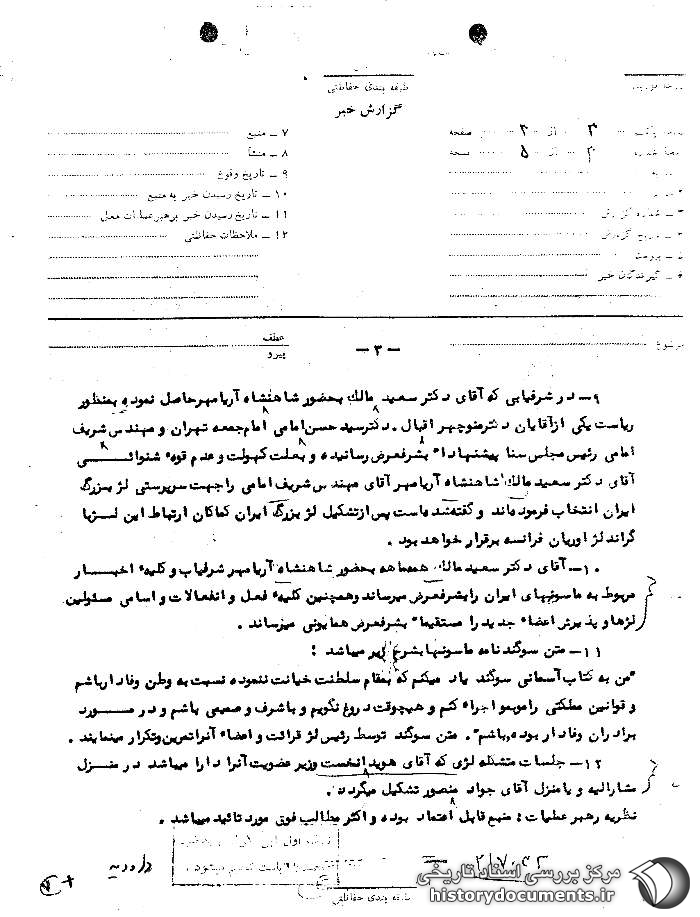 طبقه بندی حفاظتی
گزارش خبر
۳ از ۳ صفحه
۲ از ۵ نسخه
۳ - شماره گزارش
۴ - تاریخ گزارش
۵ - پیوست
۶ - گیرندگان خبر
۷ - منبع
۸ - منشأ
۹ - تاریخ وقوع
۱۰ - تاریخ رسیدن خبر به منبع
۱۱ - تاریخ رسیدن خبر برهبر عملیات محل
۱۲ - ملاحظات حفاظتی
موضوع
- ۳ -
عطف
پیرو
۹- در شرفیابی که آقای دکتر سعید مالک بحضور شاهنشاه آریامهر حاصل نموده بمنظور
ریاست یکی از آقایان دکتر منوچهر اقبال . دکتر سید حسن امامی امام جمعه تهران و مهندس شریف
امامی رئیس مجلس سنا پیشنهاداً بشرفعرض رسانیده و بعلت کهولت و عدم قوه شنوائی
آقای دکتر سعید مالک شاهنشاه آریامهر آقای مهندس شریف امامی را جهت سرپرستی لژ بزرگ
ایران انتخاب فرموده‌اند و گفته شده است پس از تشکیل لژ بزرگ ایران کماکان ارتباط این لژ با
گراند لژ اوریان فرانسه برقرار خواهد بود .
۱۰- آقای دکتر سعید مالک همه‌ماهه بحضور شاهنشاه آریامهر شرفیاب و کلیه اخبار
مربوط به ماسونهای ایران را بشرفعرض میرساند و همچنین کلیه فعل و انفعالات و اسامی مسئولین
لژها و پذیرش اعضاء جدید را مستقیماً بشرفعرض همایونی میرساند .
۱۱- متن سوگندنامه ماسونها بشرح زیر میباشد :
"من به کتاب آسمانی سوگند یاد میکنم که بمقام سلطنت خیانت ننموده نسبت به وطن وفادار باشم
و قوانین مملکتی را موبمو اجراء کنم و هیچوقت دروغ نگویم و باشرف و صمیمی باشم و در مورد
برادران وفادار بوده باشم" . متن سوگند توسط رئیس لژ قرائت و اعضاء آنرا تمرین و تکرار مینمایند .
۱۲- جلسات متشکله لژی که آقای هویدا نخست وزیر عضویت آنرا دارا میباشد در منزل
مشارالیه و یا منزل آقای جواد منصور تشکیل میگردد .
نظریه رهبر عملیات : منبع قابل اعتماد بوده و اکثر مطالب فوق مورد تائید میباشد .
طبقه بندی حفاظتی
مرکز بررسی اسناد تاریخی
historydocuments.ir